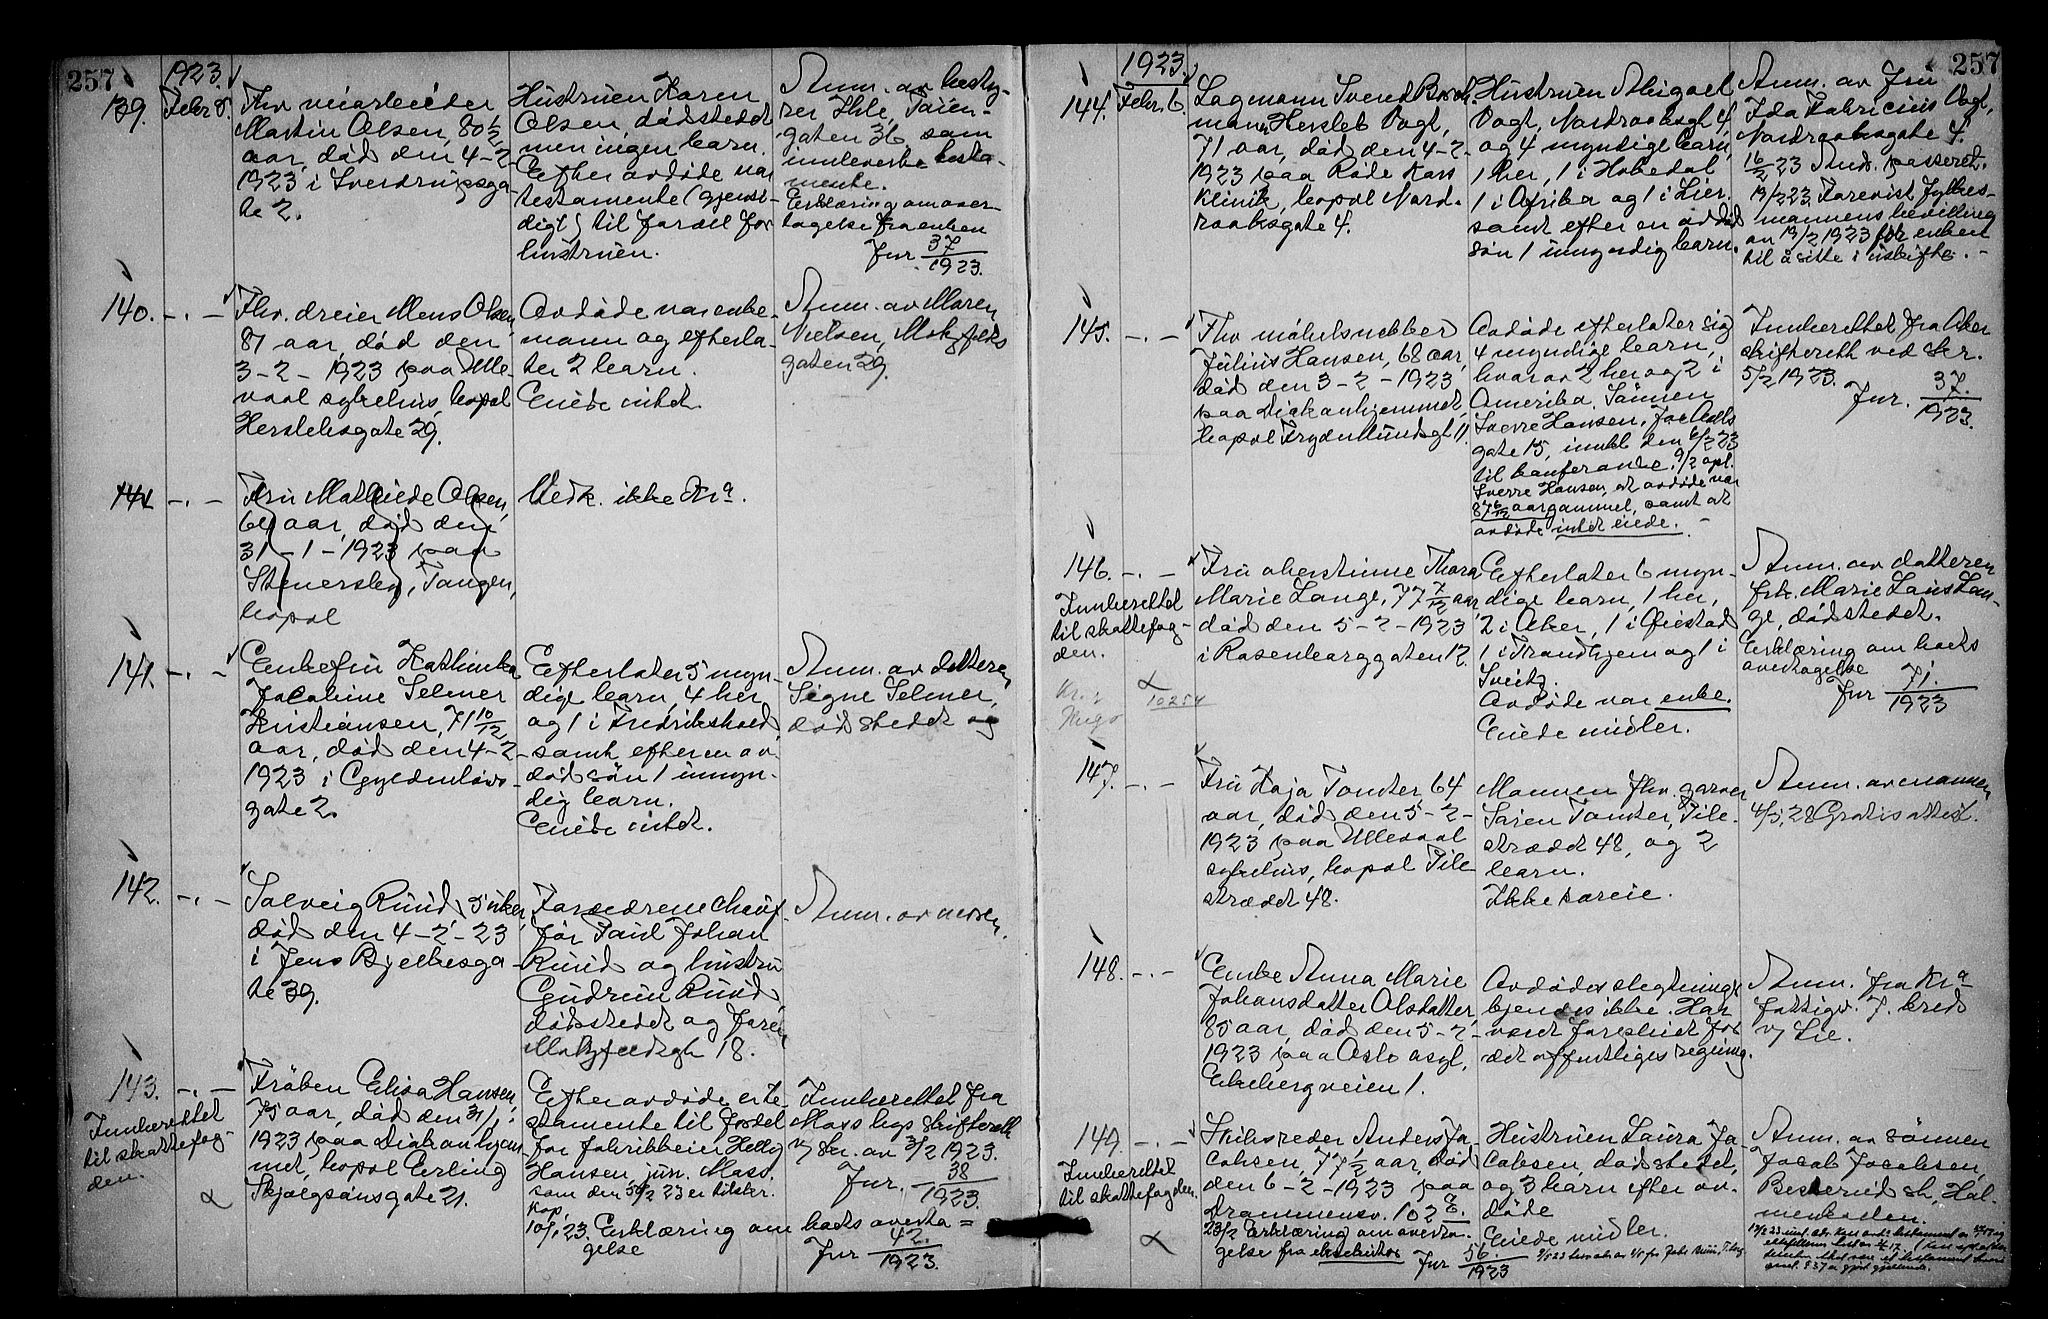 257
1923.
139. Febr 5.
Fhv veiarbeider
Martin Olsen, 80 1/2
aar, død den 4-2-
1923 i Sverdrupsga-
te 2.
Hustruen Karen
Olsen, dødstedet
men ingen barn.
Efter avdøde var
testamente (gjensi-
digt) til fordel for
hustruen.
Anm. av besty-
rer Ihle, Tøien-
gaten 36 som
testa-
mente.
Erklæring om over-
tagelse fra enken
Jnr 37/1923.
140. -.-
Fhv. dreier Mons Olsen
81 aar, død den
3-2-1923 paa Ulle-
vaal sykehus, bopæl
Herslebsgate 29.
Avdøde var enke-
mann og efterla-
ter 2 barn.
Eiede intet.
Anm. av Maren
Nielsen, Motzfelds
gaten 29.
141 -.-
Fru Mathilde Olsen,
64 aar, død den
31-1-1923 paa
Stenersby, Tangen,
bopæl
Vedk. ikke Kr a.
141. -.-
Enkefru Kathinka
Jacobine Selmer
Kristiansen, 71 10/12
aar, død den 4-2-
1923 i Gyldenløvs-
gate 2.
Efterlater 5 myn-
dige barn, 4 her
og 1 i Fredrikshald,
samt efter en av-
død søn 1 umyn-
dig barn.
Eiede intet.
Anm. av datteren
Signe Selmer,
dødstedet og
142. -.-
Solveig Ruud, 5 uker,
død den 4-2-23
i Jens Bjelkesga-
te 39.
Forældrene chauf-
før Paul Johan
Ruud og hustru
Gudrun Ruud,
dødstedet og
Motzfeldsgt 18.
Anm. av
143. -.-
Innberettet
til skattefog-
den.
Frøken Elisa Hansen
75 aar, død den 31/1
1923 paa Diakonhjem-
met, bopæl Erling
Skjalgsønsgate 21.
Efter avdøde er te-
stamente til fordel
for fabrikkeier Helly
Hansen jun. Moss.
som den 5/2 23 er tilskr.
10/1 23. Erklæring om boets overta=
gelse
Jnr 42./1923.
Innberettet fra
Moss bys skifterett
v/ skr. av 3/2 1923.
Jnr. 38/1923.
257
1923.
144. Febr. 6.
Lagmann Svend Borch-
mann Hersleb Vogt,
71 aar, død den 4-2-
1923 paa Røde Kors
Klinik, bopæl Nord-
raaksgate 4.
Hustruen Abigael
Vogt, Nordraaksgt 4
og 4 myndige barn,
1 her, 1 i Hobøl
1 i Afrika og 1 i Lier.
samt efter en avdød
søn 1 umyndig barn.
Anm. av Fru
Ida Fabricius Vogt,
Nordraaksgate 4.
16/2 23 Und. passeret.
19/2 23. Forevist fylkes-
mannens bevilling
av 19/2 1923 for enken
til å sitte i uskifte. -
145. -.-
Fhv møbelsnekker
Julius Hansen, 68 aar,
død den 3-2-1923
paa Diakonhjemmet,
bopæl Frydenlundsgt 11.
Avdøde efterlater sig
4 myndige barn,
hvorav 2 her og 2 i
Amerika. Sønnen
Sverre Hansen,
gate 15, innk. den 6/2 23
til konferanse. 9/2 opl.
Sverre Hansen, at avdøde var
aar gammel, samt at
avdøde intet eiede. -
Innberettet fra Aker
skifterett ved skr.
5/2 1923.
Jnr. 37./1923.
146. -.-
Innberettet
til skattefog-
den.
10254
Fru oberstinne Thora
Marie Lange, 77 7/12 aar,
død den 5-2-1923
i Rosenborggaten 12.
Efterlater 6 myn-
dige barn, 1 her,
2 i Aker, 1 i Øiestad
1 i Trondhjem og 1 i
Sveitz.
Avdøde var enke.
Eiede midler.
Anm. av datteren
frk. Marie Louis Lan-
ge, dødstedet.
Erklæring om boets
overtagelse
Jnr 71./1923
147. -.-
Fru Kaja Tomter 64
aar, død den 5-2-
1923 paa Ullevaal
sykehus, bopæl Pile-
strædet 48.
Mannen fhv. garver
Søren Tomter, Pile-
strædet 48, og 2
barn.
Ikke særeie.
Anm. av mannen
4/5, 28 Gratis attest.
148. -.-
Enke Anna Marie
Johansdatter Olsdatter
85 aar, død den 5-2-
1923 paa Oslo asyl,
Ekebergveien 1.
Avdødes slegtninge
kjendes ikke. Har
været forpleiet for
det offentliges regning.
Anm. fra Kr a
fattigv. 7. kreds
v/ Lie.
149. -.-
Innberettet
til skattefogden.
Skibsreder Anders Ja-
cobsen, 77 1/2 aar, død
den 6-2-1923 paa
Drammensv. 102 E.
23/2 Erklæring om overta-
gelse fra
Jnr 56./1923
Hustruen Laura Ja-
cobsen, dødstedet,
og 3 barn efter av-
døde
Eiede midler.
Anm. av sønnen
Jacob Jacobsen,
Besterud st, Hol-
menkolen.